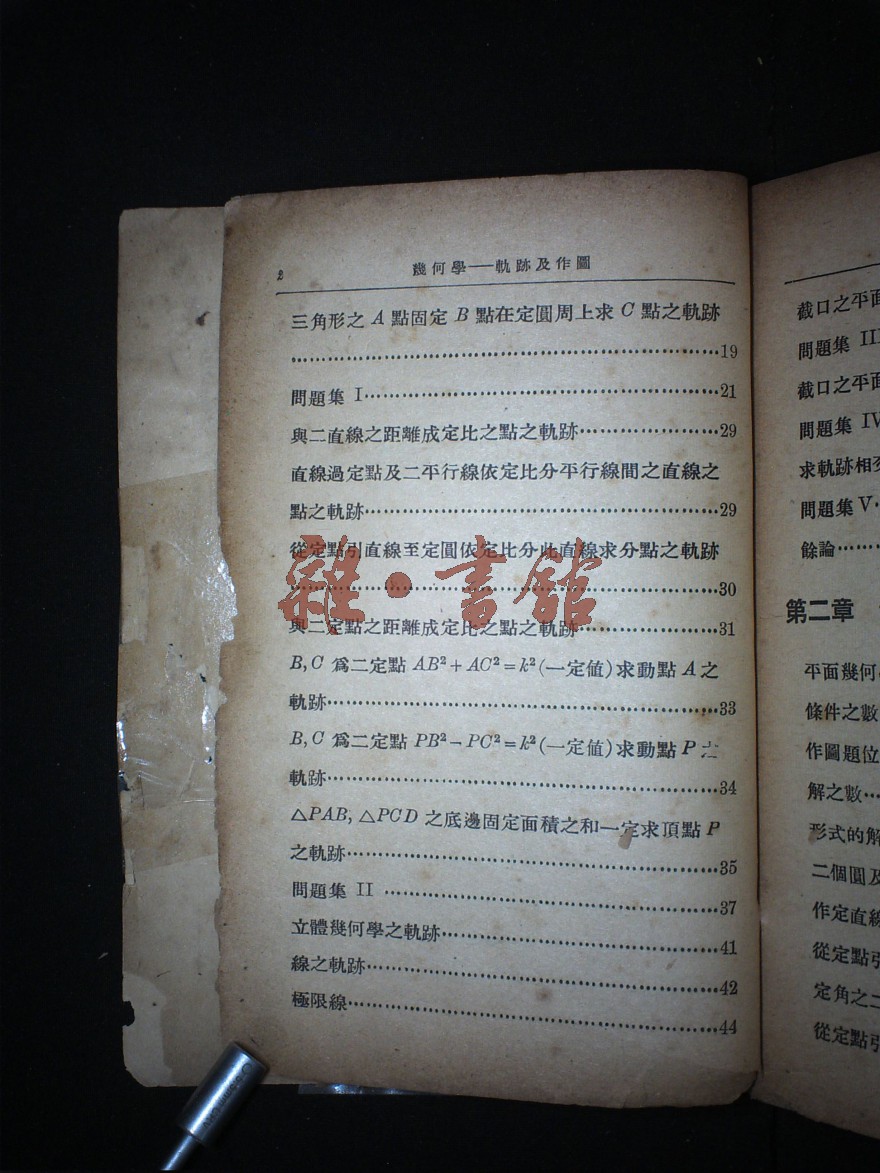 2
幾何學——軌跡及作圖
三角形之 A 點固定 B 點在定圓周上求 C 點之軌跡
……………………………………………………19
問題集 I……………………………………………21
與二直線之距離成定比之點之軌跡………………29
直線過定點及二平行線依定比分平行線間之直線之
點之軌跡……………………………………………29
從定點引直線至定圓依定比分此直線求分點之軌跡
……………………………………………………30
與二定點之距離成定比之點之軌跡………………31
B, C 爲二定點 AB²+AC²=k²(一定値)求動點 A 之
軌跡…………………………………………………33
B, C 爲二定點 PB²-PC²=k²(一定値)求動點 P 之
軌跡…………………………………………………34
△PAB, △PCD 之底邊固定面積之和一定求頂點 P
之軌跡………………………………………………35
問題集 II ……………………………………………37
立體幾何學之軌跡…………………………………41
線之軌跡……………………………………………42
極限線………………………………………………44
雜·書館
截口之平面
問題集 III
截口之平面
問題集 IV
求軌跡相交
問題集 V
餘論……
第二章
平面幾何
條件之數
作圖題位
解之數…
形式的解
二個圓及
作定直線
從定點引
定角之二
從定點引